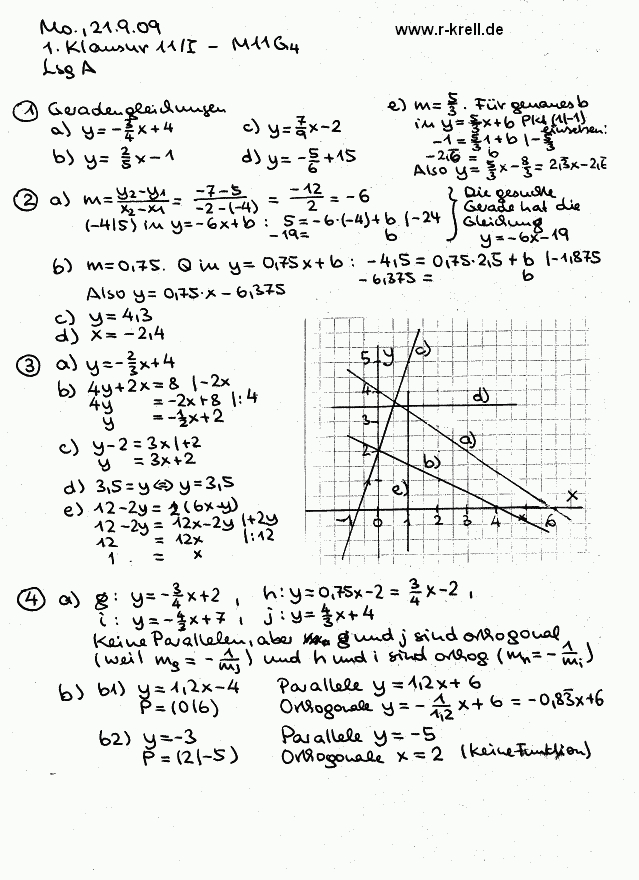 Mo., 21.9.09
www.r-krell.de
1. Klausur 11/I - M11G4
Lsg A
① Geradengleichungen
a) y = -3/4 x + 4
c) y = 7/9 x - 2
b) y = 2/5 x - 1
d) y = -5/6 + 15
e) m = 5/3. Für genaues b
in y = 5/3 x + b Pkt (1|-1)
einsetzen:
-1 = 5/3 · 1 + b |-5/3
-2,6̅ = b
Also y = 5/3 x - 8/3 = 2,3̅x - 2,6̅
② a) m = y2-y1 / x2-x1 = -7-5 / -2-(-4) = -12/2 = -6
(-4|5) in y = -6x + b : 5 = -6·(-4) + b |-24
-19 = b
Die gesuchte
Gerade hat die
Gleichung
y = -6x - 19
b) m = 0,75. Q in y = 0,75x + b : -4,5 = 0,75·2,5 + b |-1,875
-6,375 = b
Also y = 0,75·x - 6,375
c) y = 4,3
d) x = -2,4
③ a) y = -2/3 x + 4
b) 4y + 2x = 8 |-2x
4y = -2x + 8 |:4
y = -1/2 x + 2
c) y - 2 = 3x |+2
y = 3x + 2
d) 3,5 = y ⇔ y = 3,5
e) 12 - 2y = 2(6x - y)
12 - 2y = 12x - 2y |+2y
12 = 12x |:12
1 = x
5 y c)
4 d)
3 a)
2 b)
1 e) x
-1 0 1 2 3 4 5 6
④ a) g: y = -3/4 x + 2 , h: y = 0,75x - 2 = 3/4 x - 2 ,
i: y = -4/3 x + 7 , j: y = 4/3 x + 4
Keine Parallelen, aber g und j sind orthogonal
(weil mg = -1/mj) und h und i sind orthog (mh = -1/mi)
b) b1) y = 1,2x - 4 Parallele y = 1,2x + 6
P = (0|6) Orthogonale y = -1/1,2 x + 6 = -0,83̅x + 6
b2) y = -3 Parallele y = -5
P = (2|-5) Orthogonale x = 2 (keine Funktion)